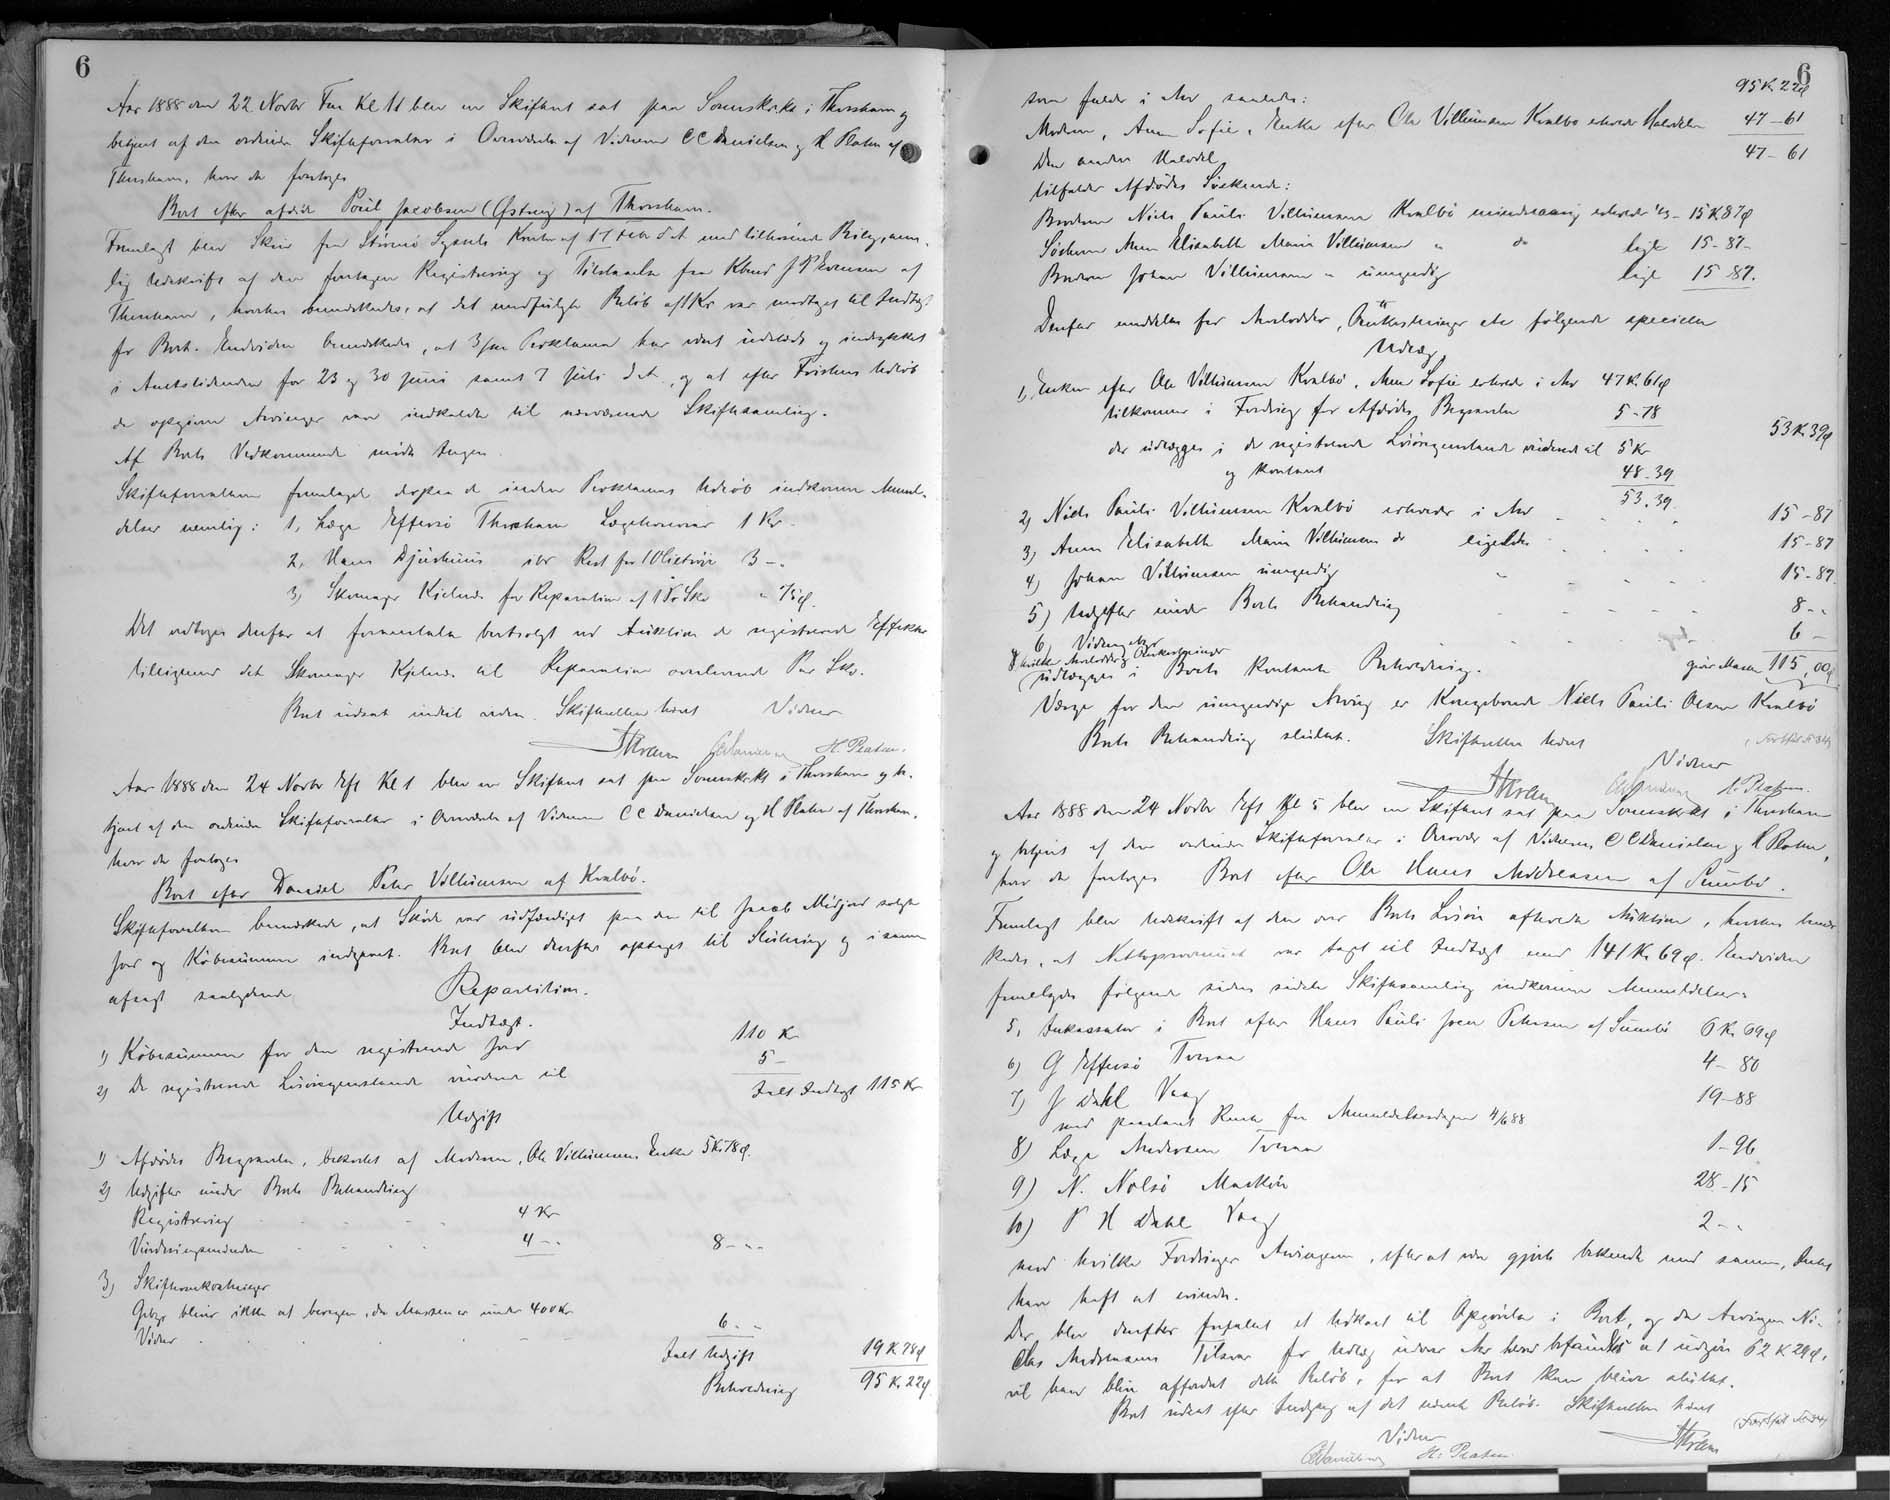 6
Aar 1888 den 22 Novbr Fm Kl 11 blev en Skifteret sat paa Sorenskr.kt i Thorshavn og
betjent af den ordinære Skifteforvalter i Overværelse af Vidnerne C C Danielsen og H Platen af
Thorshavn, hvor da foretoges
Boet efter afdøde Poul Jacobsen (Østrig) af Thorshavn.
Fremlagt blev Skriv fra Strømø Syssels Kontor af 17 Febr d A med tilhørende Bilag, nem-
lig Udskrift af den foretagne Registrering og Tilstaaelse fra Kbmd J P Evensen af
Thorshavn, hvorhos bemærkedes, at det medfulgte Beløb af 1 Kr var modtaget til Indtægt
for Boet. Endvidere bemærkedes, at 3 Proklama har været udstedt og indrykket
i Amtstidenden for 23 og 30 Juni samt 7 Juli d A, og at efter Fristens Udløb
de opgivne Arvinger vare indkaldte til nærværende Skiftesamling.
Af Boets Vedkommende mødte Ingen.
Skifteforvalteren fremlagde derpaa de inden Proklamas Udløb indkomne Anmel-
delser nemlig: 1, Læge Effersø Thorshavn Lægehonorar 1 Kr.
2, Hans Djurhuus ibr Rest for 1 Olietrøie 3 - "
3, Skomager Kjelnæs for Reparation af 1 Par Sko " 75 ø.
Det vedtoges derefter at foranstalte bortsolgt ved Auktion de registrerede Effekter
tilligemed det Skomager Kjelnæs til Reparation overleverede Par Sko.
Boet udsat indtil videre. Skifteretten hævet Vidner
C C Danielsen H. Platen.
Aar 1888 den 24 Novbr Eft Kl 1 blev en Skifteret sat paa Sorenskr.kt i Thorshavn og be-
tjent af den ordinære Skifteforvalter i Overværelse af Vidnerne C C Danielsen og H Platen af Thorshavn,
hvor da foretoges
Boet efter Daniel Peter Villumsen af Kvalbø.
Skifteforvalteren bemærkede, at Skøde var udfærdiget paa den til Jacob Midjord solgte
Jord og Købesummen indgaaet. Boet blev derefter optaget til Slutning og i samme
afsagt saalydende Repartition.
Indtægt.
1) Købesummen for den registrerede Jord 110 Kr
2) De registrerede Løsøregenstande vurderede til 5 -
Ialt Indtægt 115 Kr
Udgift
1) Afdødes Begravelse, bekostet af Moderen, Ole Villumsens Enke 5 Kr 78 ø.
2) Udgifter under Boets Behandling
Registrering 4 Kr
Vurderingsmændene 4 - " 8 - "
3) Skifteomkostninger
Gebyr bliver ikke at beregne, da Massen er under 400 Kr
Vidner 6 - "
Ialt Udgift 19 K 78 ø
Beholdning 95 K. 22 ø
6
95 K. 22 ø
som falder i Arv saaledes:
Moderen, Anna Sofie, Enke efter Ole Villumsen Kvalbø erholder Halvdelen 47 - 61
Den anden Halvdel 47 - 61
tilfalder Afdødes Søskende:
Broderen Niels Pauli Villumsen Kvalbø mindreaarig erholder 1/3 - 15 K 87 ø
Søsteren Anna Elisabeth Maria Villumsen " do lige 15 - 87 -
Broderen Johan Villumsen " umyndig lige 15 87.
Derefter meddeles for Arvelodder, Omkostninger etc følgende specielle
Udlæg
1, Enken efter Ole Villumsen Kvalbø, Anna Sofie erholder i Arv 47 K. 61 ø
tilkommer i Fordring for Afdødes Begravelse 5 - 78
53 K. 39 ø
der udlægges i de registrerede Løsøregenstande vurderede til 5 Kr
og kontant 48 - 39
53. 39
2) Niels Pauli Villumsen Kvalbø erholder i Arv 15 - 87
3) Anna Elisabeth Maria Villumsen do ligeledes 15 - 87
4) Johan Villumsen umyndig 15 - 87
5) Udgifter under Boets Behandling 8 - "
6) Vidnerne 6 -
Hvilke Arvelodder og Omkostninger
udlægges i Boets kontante Beholdning. giver Massen 115,00 ø
Værge for den umyndige Arving er Kongsbonde Niels Pauli Olsen Kvalbø
Boets Behandling sluttet. Skifteretten hævet
Vidner
C C Danielsen H. Platen.
Aar 1888 den 24 Novbr Eft Kl 5 blev en Skifteret sat paa Sorenskr.kt i Thorshavn
og betjent af den ordinære Skifteforvalter i Overvær af Vidnerne C C Danielsen og H Platen,
hvor da foretoges Boet efter Ole Hans Andreasen af Sumbø.
Fremlagt blev Udskrift af den over Boets Løsøre afholdte Auktion, hvorhos bemær-
kedes, at Nettoprovenuet var taget til Indtægt med 141 Kr 69 ø. Endvidere
fremlagdes følgende siden sidste Skiftesamling indkomne Anmeldelser:
5, Inkassator i Boet efter Hans Pauli Joen Petersen af Sumbø 6 Kr 69 ø
6) G Effersø Tveraa 4 - 80
7) J Dahl Vaag 19 - 88
med paaløbne Rente fra Anmeldelsesdagen 4/6 88
8) Læge Andersen Tveraa 1 - 96
9) N. Nolsø 28 - 15
10) P H Dahl Vaag 2 - "
mod hvilke Fordringer Arvingerne, efter at være gjorte bekendte med samme, Intet
have haft at erindre.
Der blev derefter forfattet et Udkast til Opgørelse i Boet, og da Arvingen Ni-
clas Andreasens Tilsvar for Udlæg udover Arv derved befandtes at udgøre 62 K 29 ø,
vil han blive affordret dette Beløb, for at Boet kan blive sluttet.
Boet udsat efter Indgang af det nævnte Beløb. Skifteretten hævet
Vidner
C C Danielsen H. Platen